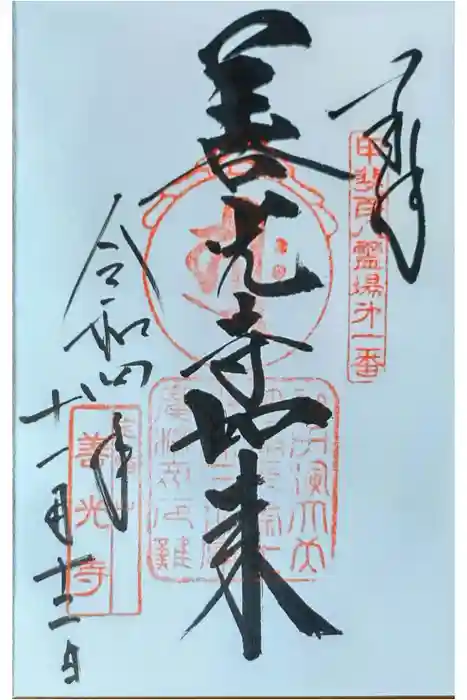 奉拝
甲斐百八霊場第一番
善光寺如来
令和四年
十一月十二日
善光寺